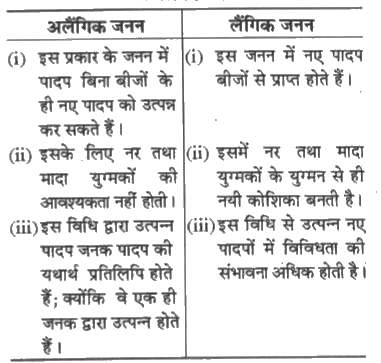 अलैंगिक जनन
लैंगिक जनन
(i) इस प्रकार के जनन में
पादप बिना बीजों के
ही नए पादप को उत्पन्न
कर सकते हैं।
(ii) इसके लिए नर तथा
मादा युग्मकों की
आवश्यकता नहीं होती।
(iii) इस विधि द्वारा उत्पन्न
पादप जनक पादप की
यथार्थ प्रतिलिपि होते
हैं; क्योंकि वे एक ही
जनक द्वारा उत्पन्न होते
हैं।
(i) इस जनन में नए पादप
बीजों से प्राप्त होते हैं।
(ii) इसमें नर तथा मादा
युग्मकों के युग्मन से ही
नयी कोशिका बनती है।
(iii) इस विधि से उत्पन्न नए
पादपों में विविधता की
संभावना अधिक होती है।